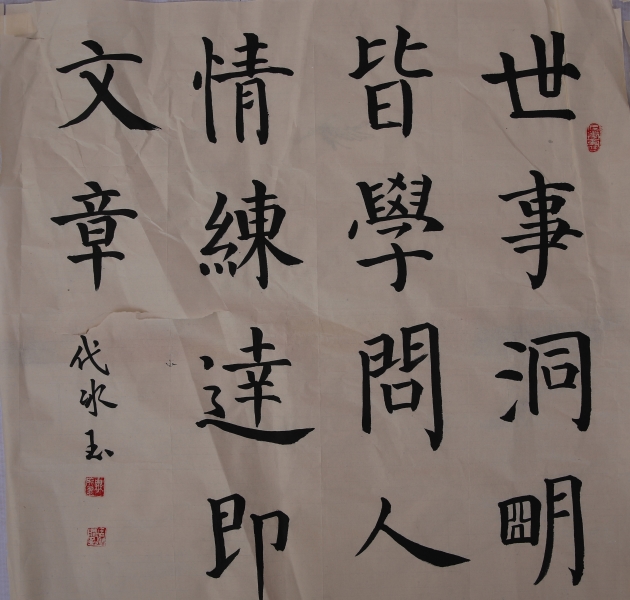 世事洞明
皆學問人
情練達即
文章
代冰玉